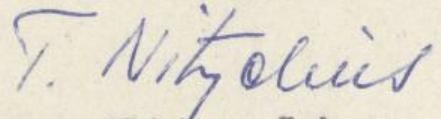 T. Nitzelius